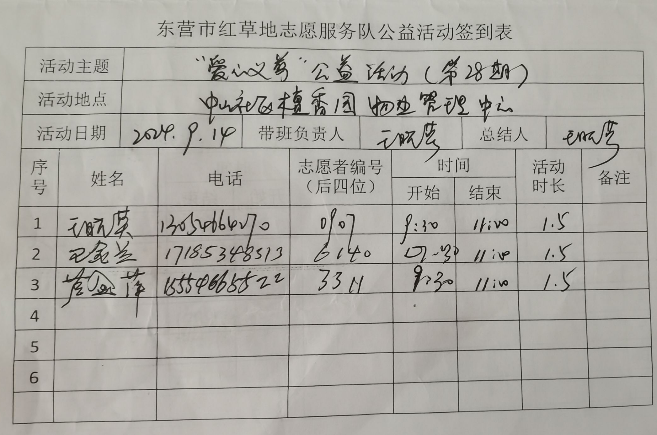 东营市红草地志愿服务队公益活动签到表
活动主题 "爱心义剪"公益活动(第28期)
活动地点 中山社区檀香园物业管理中心
活动日期 2024.9.14 带班负责人 王晓英 总结人 王晓英
序号 姓名 电话 志愿者编号(后四位) 时间 开始 结束 活动时长 备注
1 王晓英 13054664270 0907 9:30 11:00 1.5
2 17185348513 6140 9:30 11:00 1.5
3 15554666522 3311 9:30 11:00 1.5
4
5
6